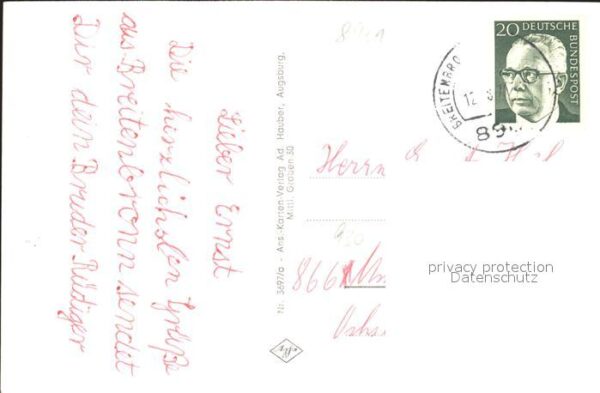 Lieber Ernst
Die herzlichsten Grüße
aus Breitenbronn sendet
Dir dein Bruder Rüdiger
Nr. 3697/a - Ans.-Karten-Verlag Ad. Hauber, Augsburg,
Mittl. Graben 30
20 DEUTSCHE
BUNDESPOST
BREITENBRO
12
89
Herrn E
866
privacy protection
Datenschutz